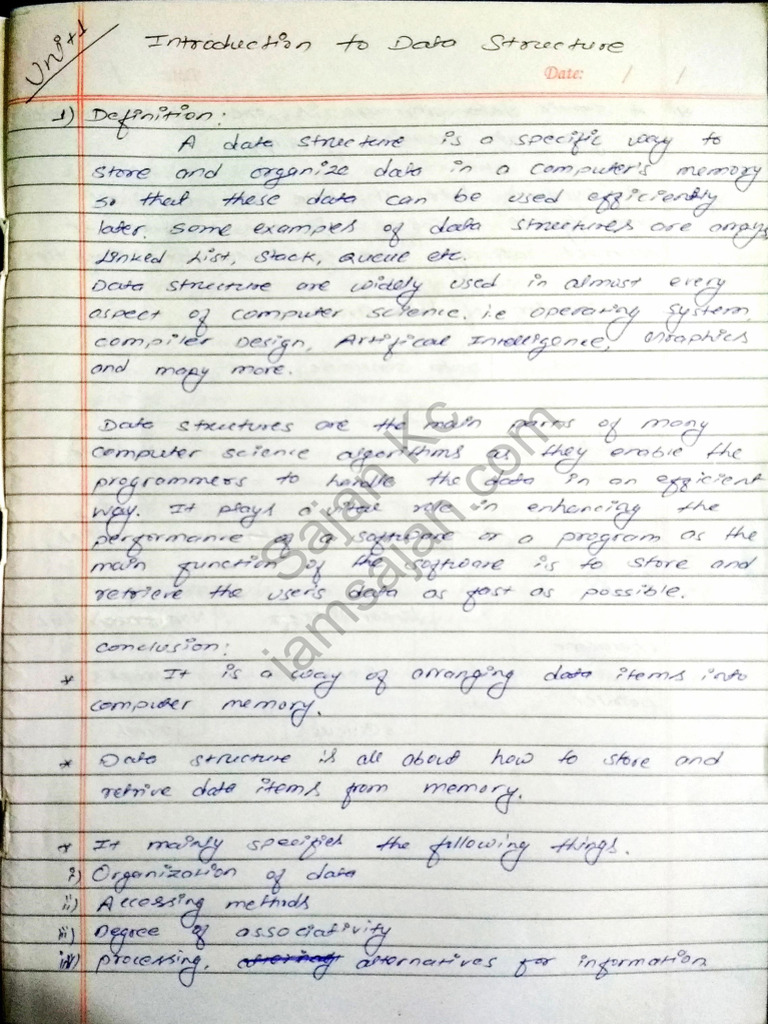 Unit 1
Introduction to Data Structure
Date: / /
1) Definition:
A data structure is a specific way to
store and organize data in a computer's memory
so that these data can be used efficiently
later. Some examples of data structures are arrays,
Linked List, Stack, Queue etc.
Data structure are widely used in almost every
aspect of computer science. i.e operating system,
compiler Design, Artifical Intelligence, Graphics
and many more.
Data structures are the main parts of many
computer science algorithms as they enable the
programmers to handle the data in an efficient
way. It plays a vital role in enhancing the
performance of a software or a program as the
main function of the software is to store and
retrieve the user's data as fast as possible.
Conclusion:
* It is a way of arranging data items into
computer memory.
* Data structure is all about how to store and
retrive data items from memory.
* It mainly specifies the following things.
i) Organization of data
ii) Accessing methods
iii) Degree of associativity
iv) processing, alternatives for information
Sajan Kc
iamsajan.com